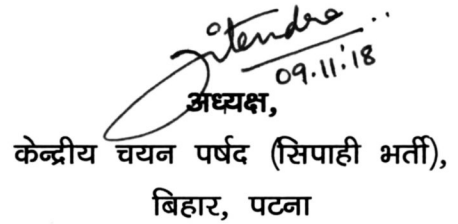 Jitendra
09.11.18
अध्यक्ष,
केन्द्रीय चयन पर्षद (सिपाही भर्ती),
बिहार, पटना